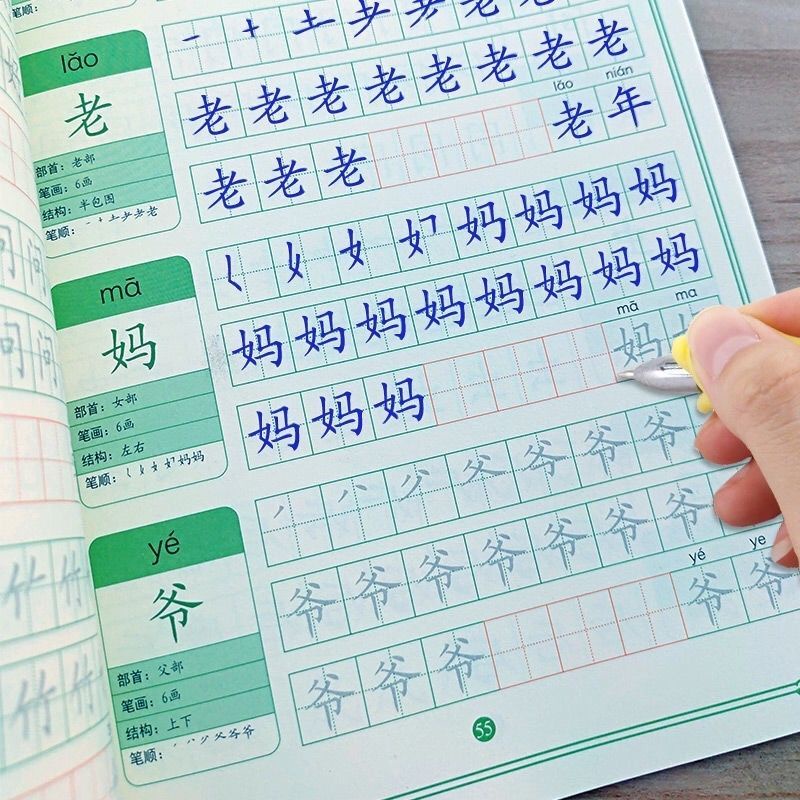 笔顺:
lǎo
老
部首:老部
笔画:6画
结构:半包围
笔顺:
一 十 土 耂
老 老 老 老 老 老 老 老
lǎo nián
老 老 老 老 年
mā
妈
部首:女部
笔画:6画
结构:左右
笔顺:
女 妈 妈 妈 妈
妈 妈 妈 妈 妈 妈 妈 妈
mā ma
妈 妈 妈 妈
yé
爷
部首:父部
笔画:6画
结构:上下
笔顺:
八 父 爷 爷 爷
爷 爷 爷 爷 爷 爷 爷
yé ye
爷 爷 爷 爷 爷
55
问 问
竹 竹
竹 竹